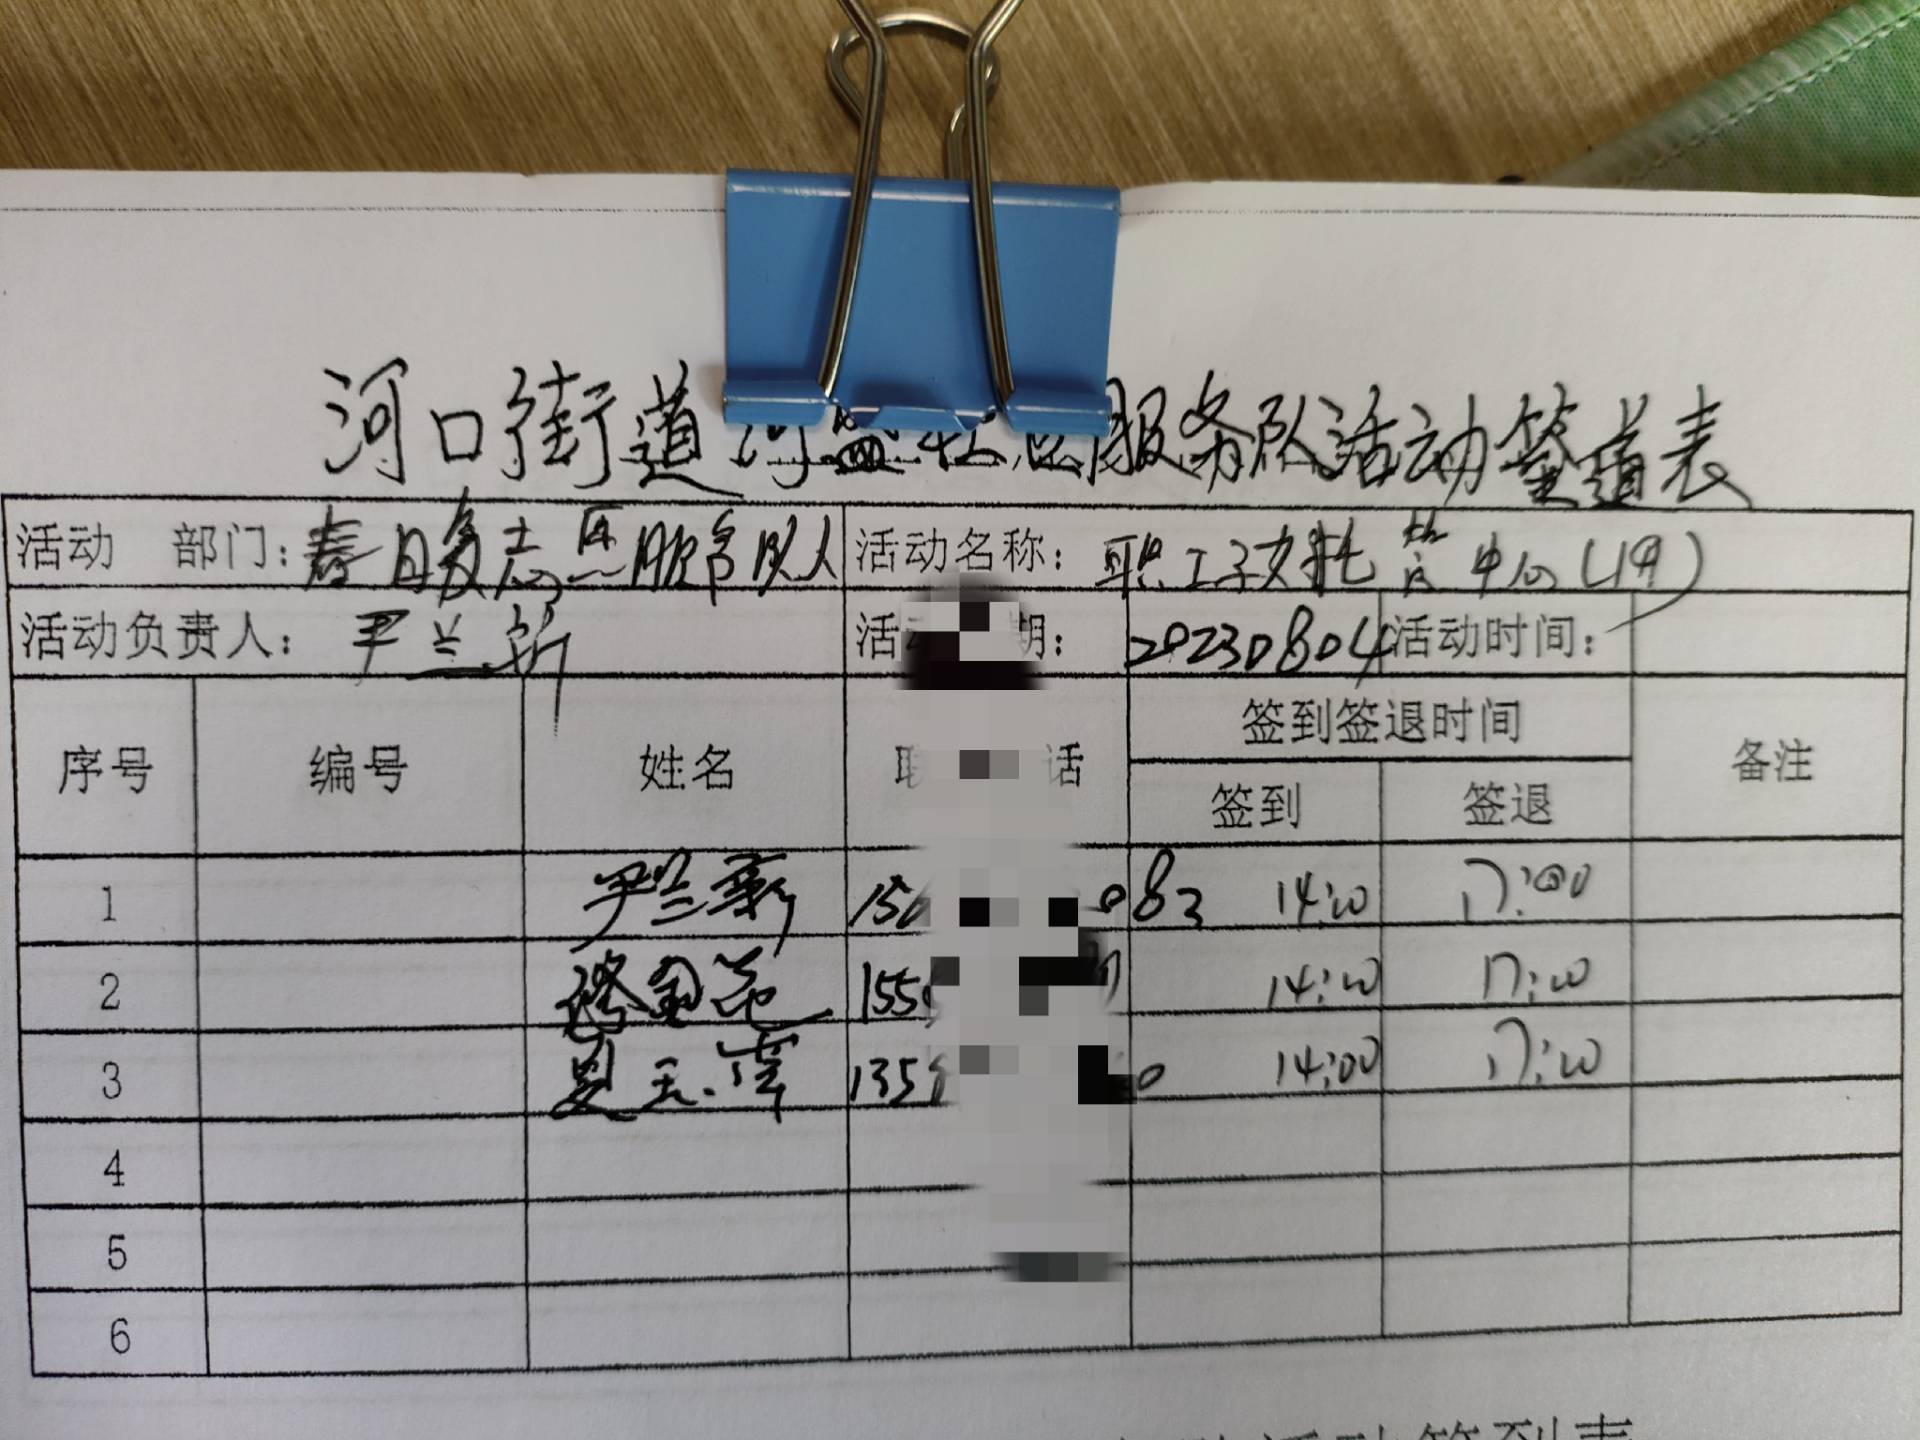 河口街道河盛社区服务队活动签道表
活动 部门：春日暖志愿服务队人 活动名称：职工子女托管中心（1中）
活动负责人：尹兰新 活 期：20230804 活动时间：
序号 编号 姓名 联 话 签到签退时间 备注
签到 签退
1 尹兰新 156 083 14:00 17:00
2 155 14:00 17:00
3 135 0 14:00 17:00
4
5
6
活动签到表